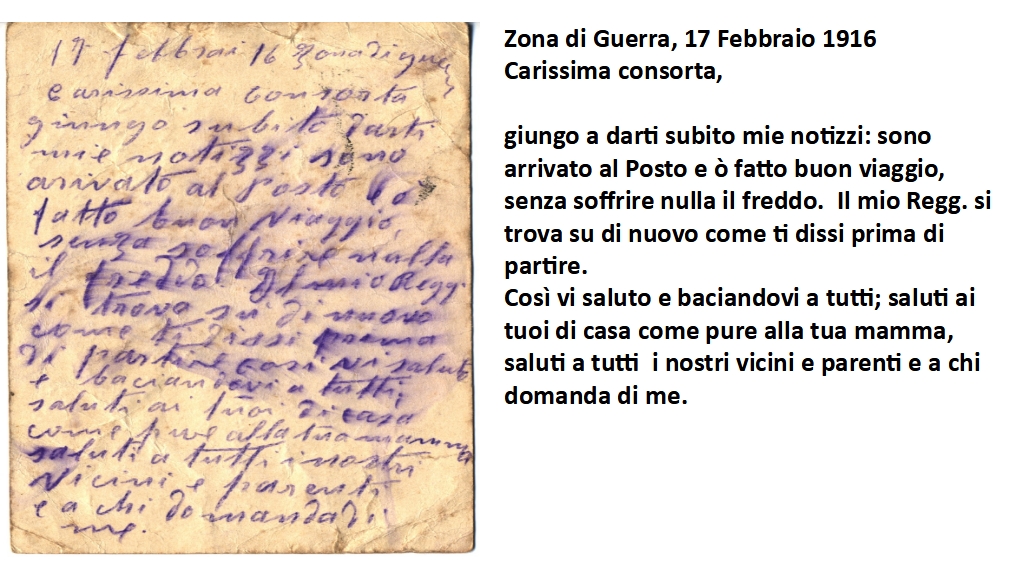 17 febbrai 16 Zona di guerra
carissima consorta
giungo subito darti
mie notizzi sono
arivato al Posto e ò
fatto buon viaggio,
senza soffrire nulla
il freddo. Il mio Regg.
si trova su di nuovo
come ti dissi prema
di partire cosi vi saluto
e baciandovi a tutti,
saluti ai tuoi di casa
come pure alla tua mamma
saluti a tutti i nostri
vicini e parenti
e a chi domanda di
me.
Zona di Guerra, 17 Febbraio 1916
Carissima consorta,
giungo a darti subito mie notizzi: sono
arrivato al Posto e ò fatto buon viaggio,
senza soffrire nulla il freddo.  Il mio Regg. si
trova su di nuovo come ti dissi prima di
partire.
Così vi saluto e baciandovi a tutti; saluti ai
tuoi di casa come pure alla tua mamma,
saluti a tutti  i nostri vicini e parenti e a chi
domanda di me.